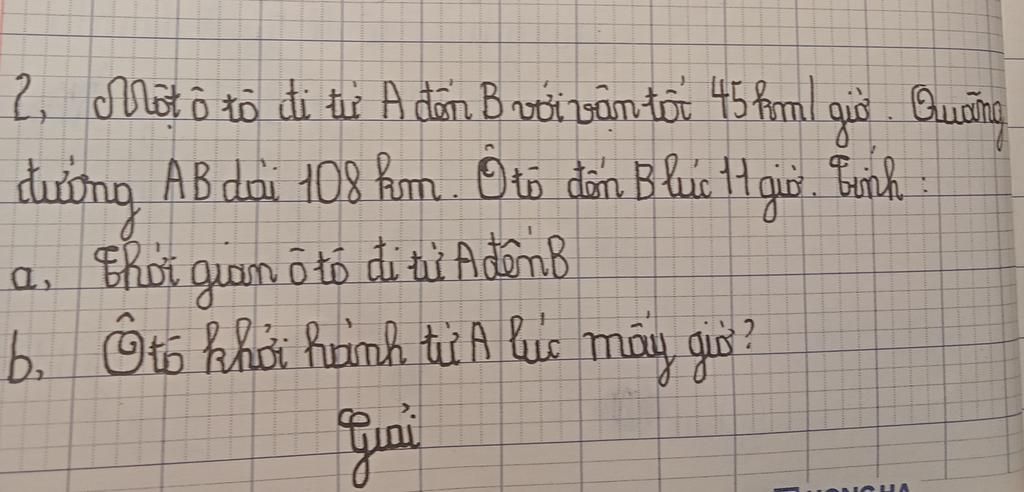 2, Một ô tô đi từ A đến B với vận tốc 45 km/ giờ. Quãng
đường AB dài 108 km. Ô tô đến B lúc 11 giờ. Tính :
a, Thời gian ô tô đi từ A đến B
b, Ô tô khởi hành từ A lúc mấy giờ?
Giải
HONG HA